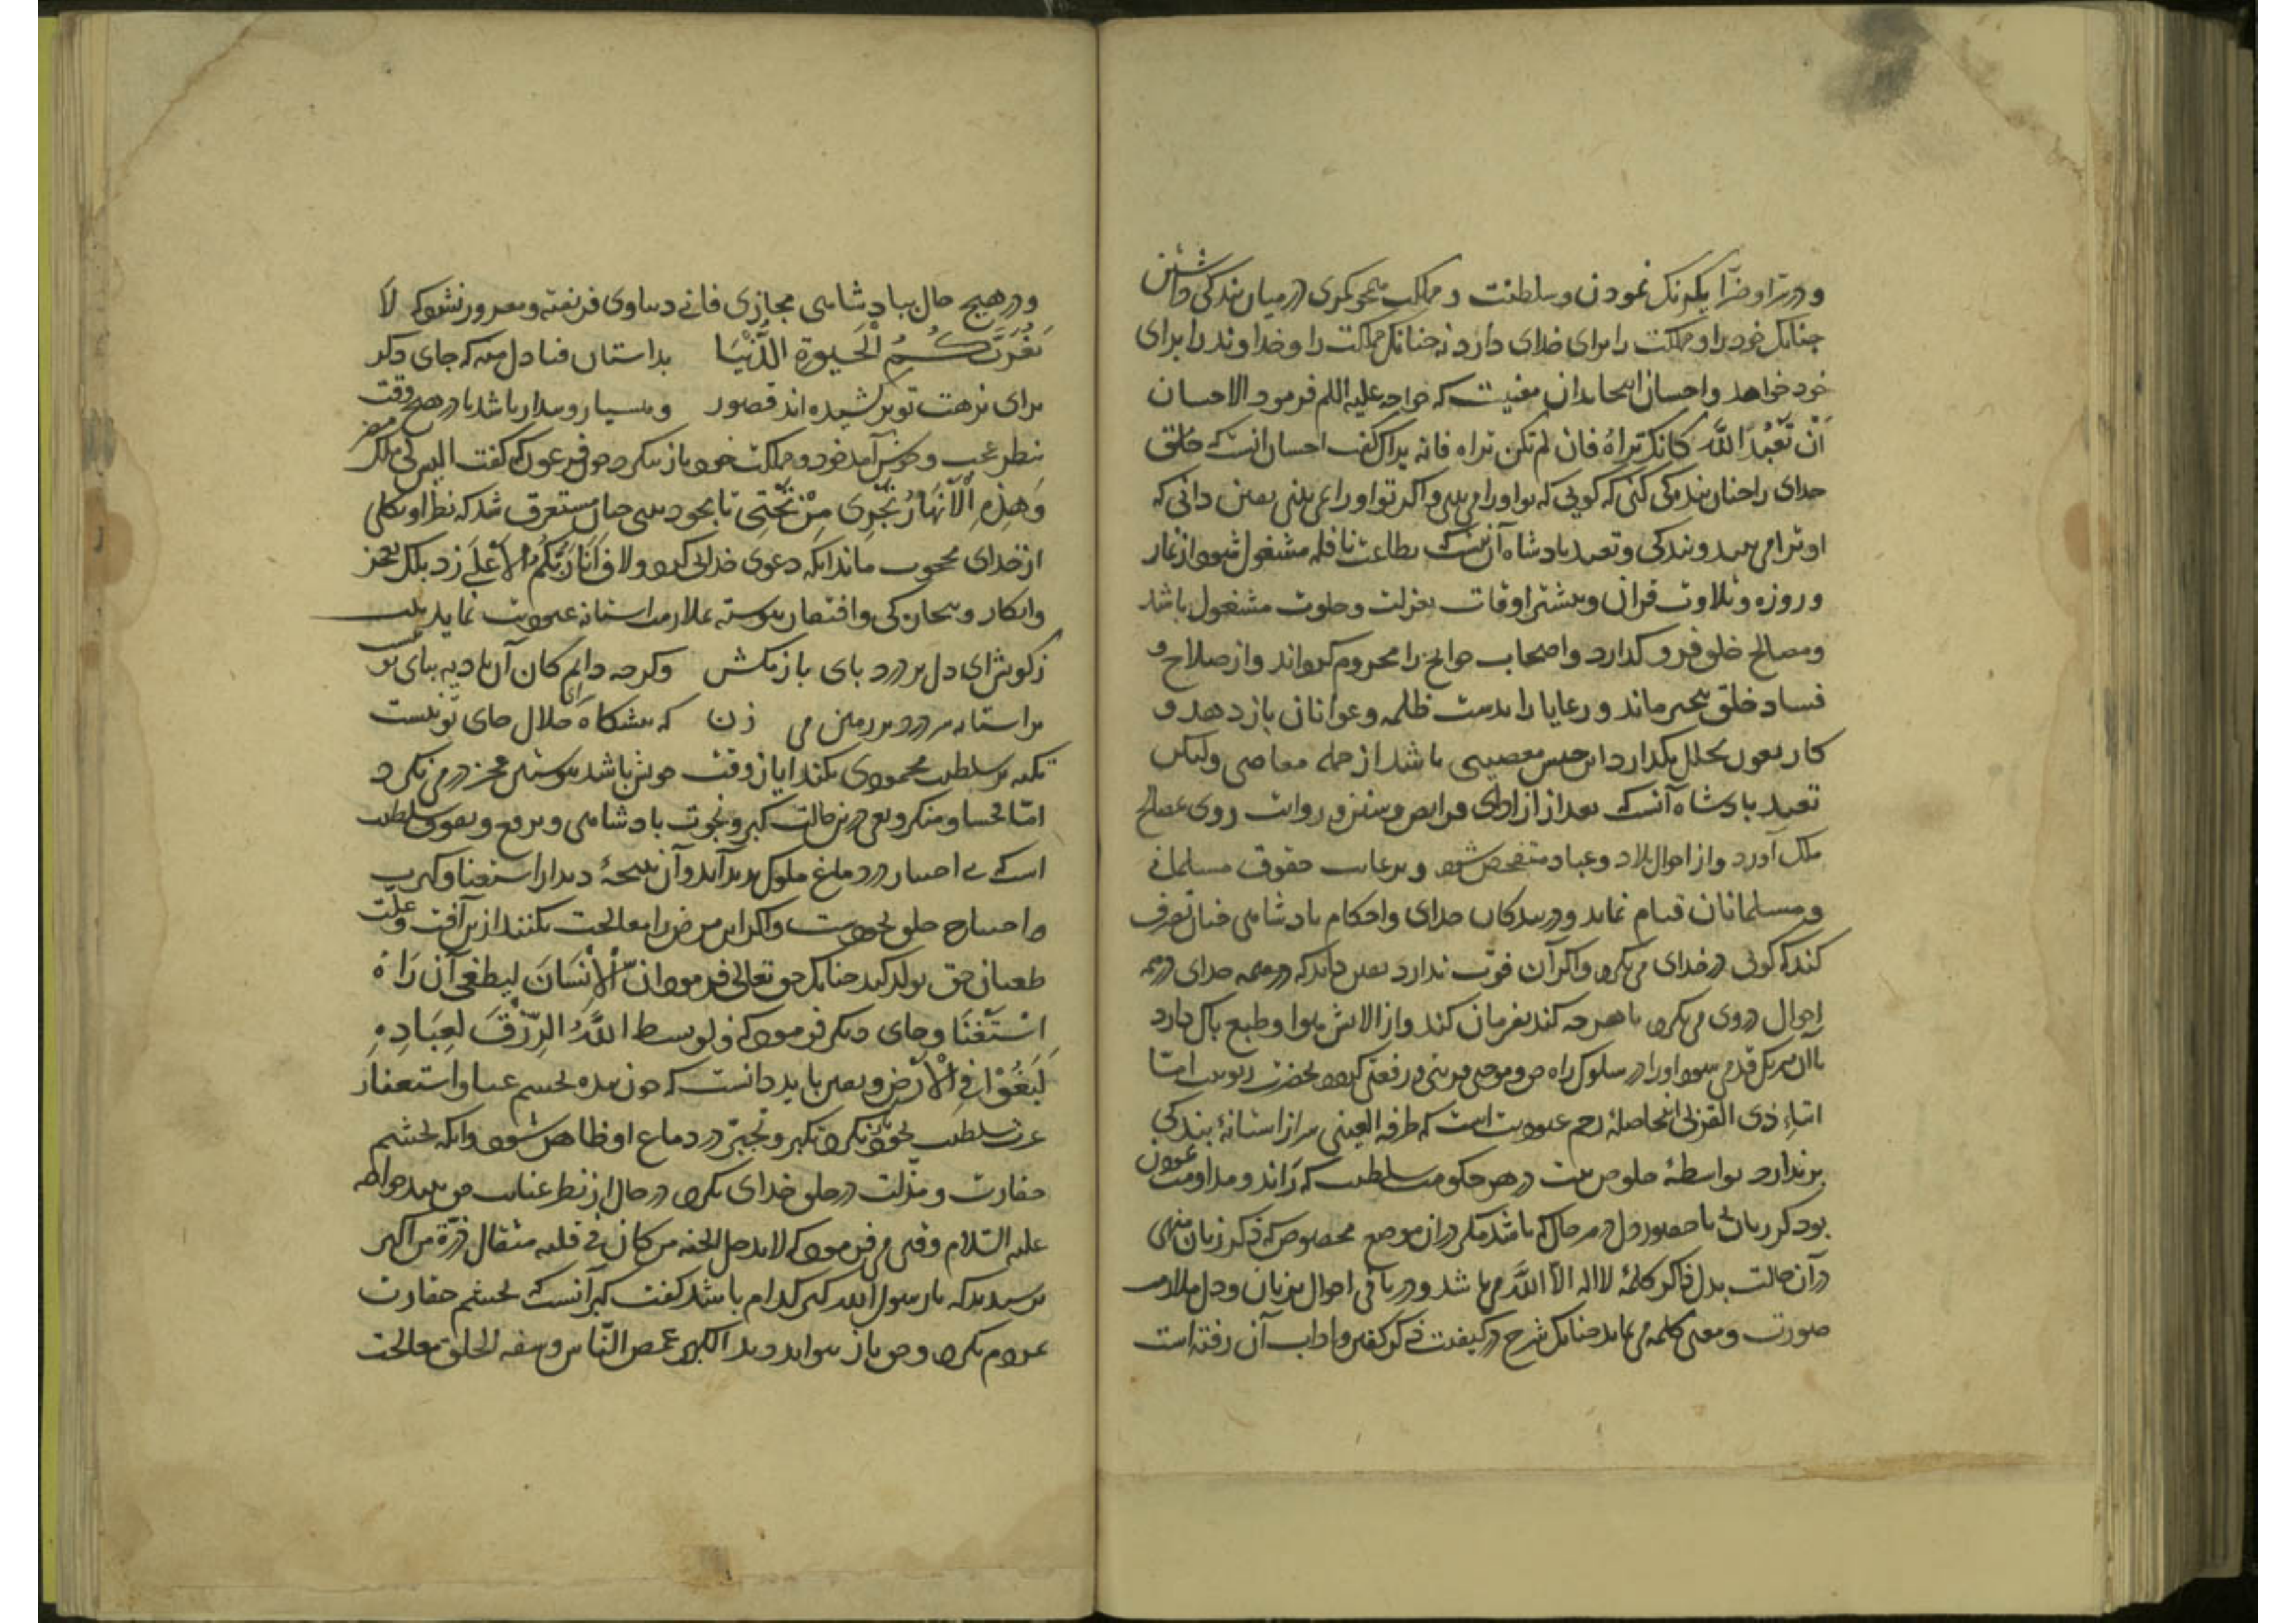 و در سرا و ضرا یکرنک نمودن و سلطنت و مملکت همجو کمری در میان بندکی داشتن
جنانک خود را و مملکت را برای خدای دارد نه جنانک مملکت را و خداوند را برای
خود خواهد و احسان اینجا بدان معنیست که خواجه علیه السلم فرمود الاحسان
اَنْ تَعْبُدَ اللَّه کانک تراهُ فان لم تکن تراه فانه یراک کفت احسان آنست که خالق
خدای را جنان بندکی کنی که کویی که تو او را می بینی و اکر تو او را نمی بینی یقین دانی که
او ترا می بیند و بندکی و تعبد بادشاه آن نیست که بطاعت نافله مشغول شود از نماز
و روزه و تلاوت قران و بیشتر اوقات بعزلت و خلوت مشغول باشد
و مصالح خلق فرو کذارد و اصحاب حوایج را محروم کرداند و از صلاح و
فساد خلق بیخبر ماند و رعایا را بدست ظلمه و عوانان باز دهد و
کار بعون بخلل بکذارد این جنس معصیتی باشد از جمله معاصی ولیکن
تعبد بادشاه آنست که بعد از ادای فرایض و سنن و رواتب روی بمصالح
ملک آورد و از احوال بلاد و عباد متفحص شود و برعایت حقوق مسلمانی
و مسلمانان قیام نماید و در بندکان خدای و احکام بادشاهی جنان تصرف
کند که کوئی در خدای می نکرد و اکر آن قوت ندارد یقین داند که در همه خدای در همه
احوال در وی می نکرد تا هرجه کند بفرمان کند و از الایش هوا و طبع باک دارد
تا آن هر یک قدمی شود او را در سلوک راه حق و موجب قربتی و رفعتی کردد بحضرت ربوبیت اما
ایتاءِ ذی القربی اینجا صلهٔ رحم عبودیت است که طرفة العینی سر از استانهٔ بندکی
برندارد بواسطهٔ خلوص نیت در هر حکومت و سلطنت که راند و مداومت نمودن
بود بر ذکر زبانی با حضور دل در هر حال که باشد مکر در آن موضع مخصوص که ذکر زبان منهی
در آن حالت بدل ذاکر کلمهٔ لا اله الّا اللَّه می باشد و در باقی احوال بزبان و دل ملازمت
صورت و معنی کلمه می نماید جنانک شرح در کیفیت ذکر کفتن و اداب آن رفته است
و در هیج حال ببادشاهی مجازی فانی دنیاوی فریفته و مغرور نشود که لا
یَغُرَّنَّکُمُ الْحَیوةِ الدُّنْیَا بداستان فنا دل منه که جای دکر
برای نزهت تو برکشیده اند قصور و هشیار و بیدار باشد تا در هیج وقت
بنظر عجب و خوش آمد خود و مملکت خود باز ننکرد جون فرعون که کفت الیس لی ملک مصر
وَهٰذِهِ الْاَنْهَارُ تَجْرِی مِنْ تَحْتِی تا بخودبینی جنان مستغرق شد که نظر او بکلی
از خدای محجوب ماند آنکه دعوی خدایی کرد و لاف اَنَا رَبُّکُمُ الْاَعْلَی زد بلک بعجز
و انکسار و بیجارکی و افتقار بیوسته ملازمت استانه عبودیت نماید بیت
ز کویش ای دل بر درد بای باز مکش و کرجه دانم کان آن بادیه ببای تو نیست
بر استانه سر درد بر زمین می زن که بیشکاه جلال جای تو نیست
تکیه بر سلطنت محمودی نکند ایاز وقت خویش باشد بیوسته بعجز در می نکرد
امّا فحشا و منکر و بغی درین حالت کبر و نخوت بادشاهی و ترفع و تفوق سلطنت
است که بی اختیار در دماغ ملوک بدید آید و آن نتیجهٔ دیدار استغنا و کثرت
و احتیاج خلق بخودست و اکر این مرض را معالجت نکنند ازین آفت و علت
طغیان حق تولد کند جنانک حق تعالی فرمود انَّ الْاِنْسَانَ لیطغی اَن رَاهُ
اسْتَغْنَا و جای دیکر فرمود که و لو بسط اللَّهُ الرِّزْقَ لِعِبَادِهِ
لَبَغَوْا فِی الْاَرْضِ و یقین باید دانست که جون بنده بجشم غنا و استغنا و
عزت سلطنت بخود نکرد تکبر و تجبّر در دماغ او ظاهر شود و آنکه بجشم
حقارت و مذلت در خلق خدای نکرد در حال از نظر عنایت حق بیفتد خواجه
علیه السّلام وقتی می فرمود که لا یدخل الجنة من کان فی قلبه مثقال ذرّة من الکبر
برسیدند که یا رسول الله کبر کدام باشد کفت کبر آنست که بجشم حقارت
بمردم نکرد و حق باز نتواند دید الکبر غمص النّاس و سفه الحق معالجت